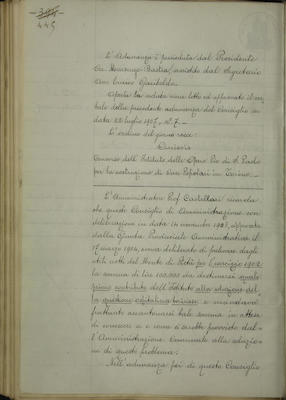 445
L'Adunanza è presieduta dal Presidente
Cav. Bastia, assistito dal Segretario
Enrico Garibaldi.
Aperta la seduta viene letto ed approvato il ver
bale della precedente adunanza del Consiglio in
data 22 luglio 1925, N. 7.
L'ordine del giorno reca:
Concorso dell'Istituto delle Opere Pie di S. Paolo
per la costruzione di Case Popolari in Torino.
L'Amministratore Prof. Castellari ricorda
che questo Consiglio di Amministrazione con
deliberazione in data 14 novembre 1923, approvata
dalla Giunta Provinciale Amministrativa il
17 marzo 1924, aveva deliberato di prelevare dagli
utili netti del Monte di Pietà per l'esercizio
la somma di lire 100.000 da destinarsi quale
primo contributo dell'Istituto alla soluzione del
la questione
frattanto accantonarsi tale somma in attesa
di conoscere se e come sarebbe provvisto dal
l'Amministrazione Comunale alla soluzio
ne di questo problema.
Nell'adunanza poi di questo Consiglio